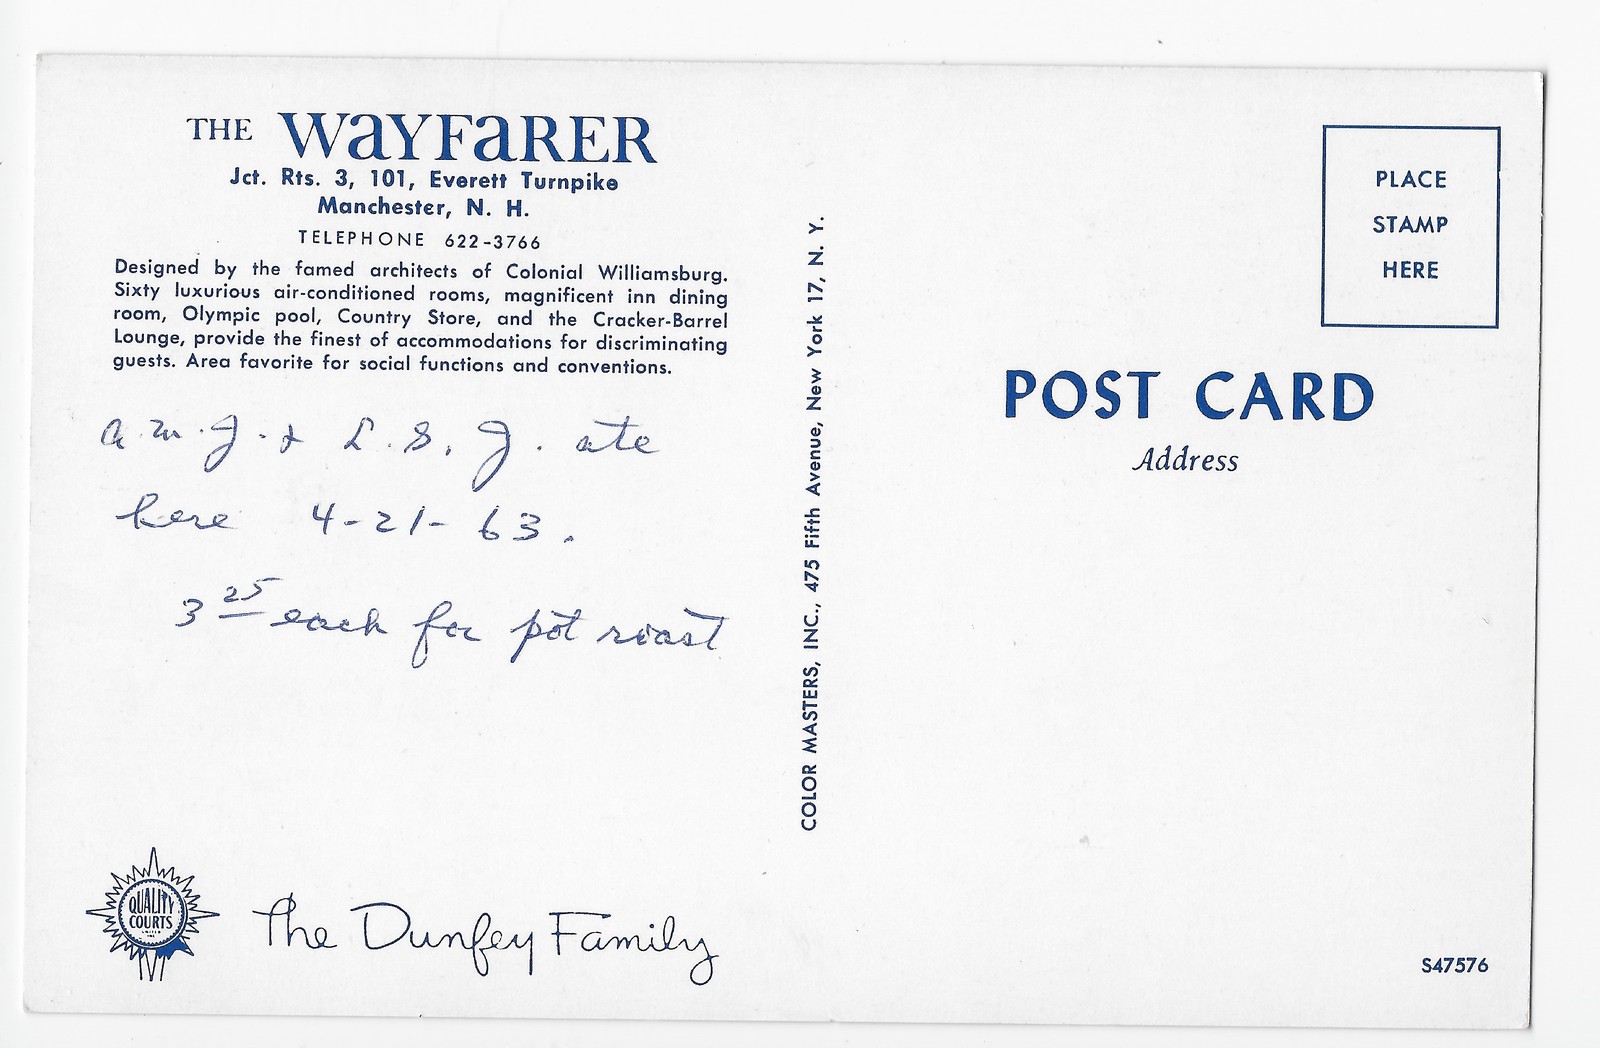 THE WAYFARER
Jct. Rts. 3, 101, Everett Turnpike
Manchester, N. H.
TELEPHONE 622-3766
Designed by the famed architects of Colonial Williamsburg.
Sixty luxurious air-conditioned rooms, magnificent inn dining
room, Olympic pool, Country Store, and the Cracker-Barrel
Lounge, provide the finest of accommodations for discriminating
guests. Area favorite for social functions and conventions.
a.m.J. & L.S.J. ate
here 4-21-63.
3 25 each for pot roast
QUALITY
COURTS
The Dunfey Family
COLOR MASTERS, INC., 475 Fifth Avenue, New York 17, N. Y.
PLACE
STAMP
HERE
POST CARD
Address
S47576